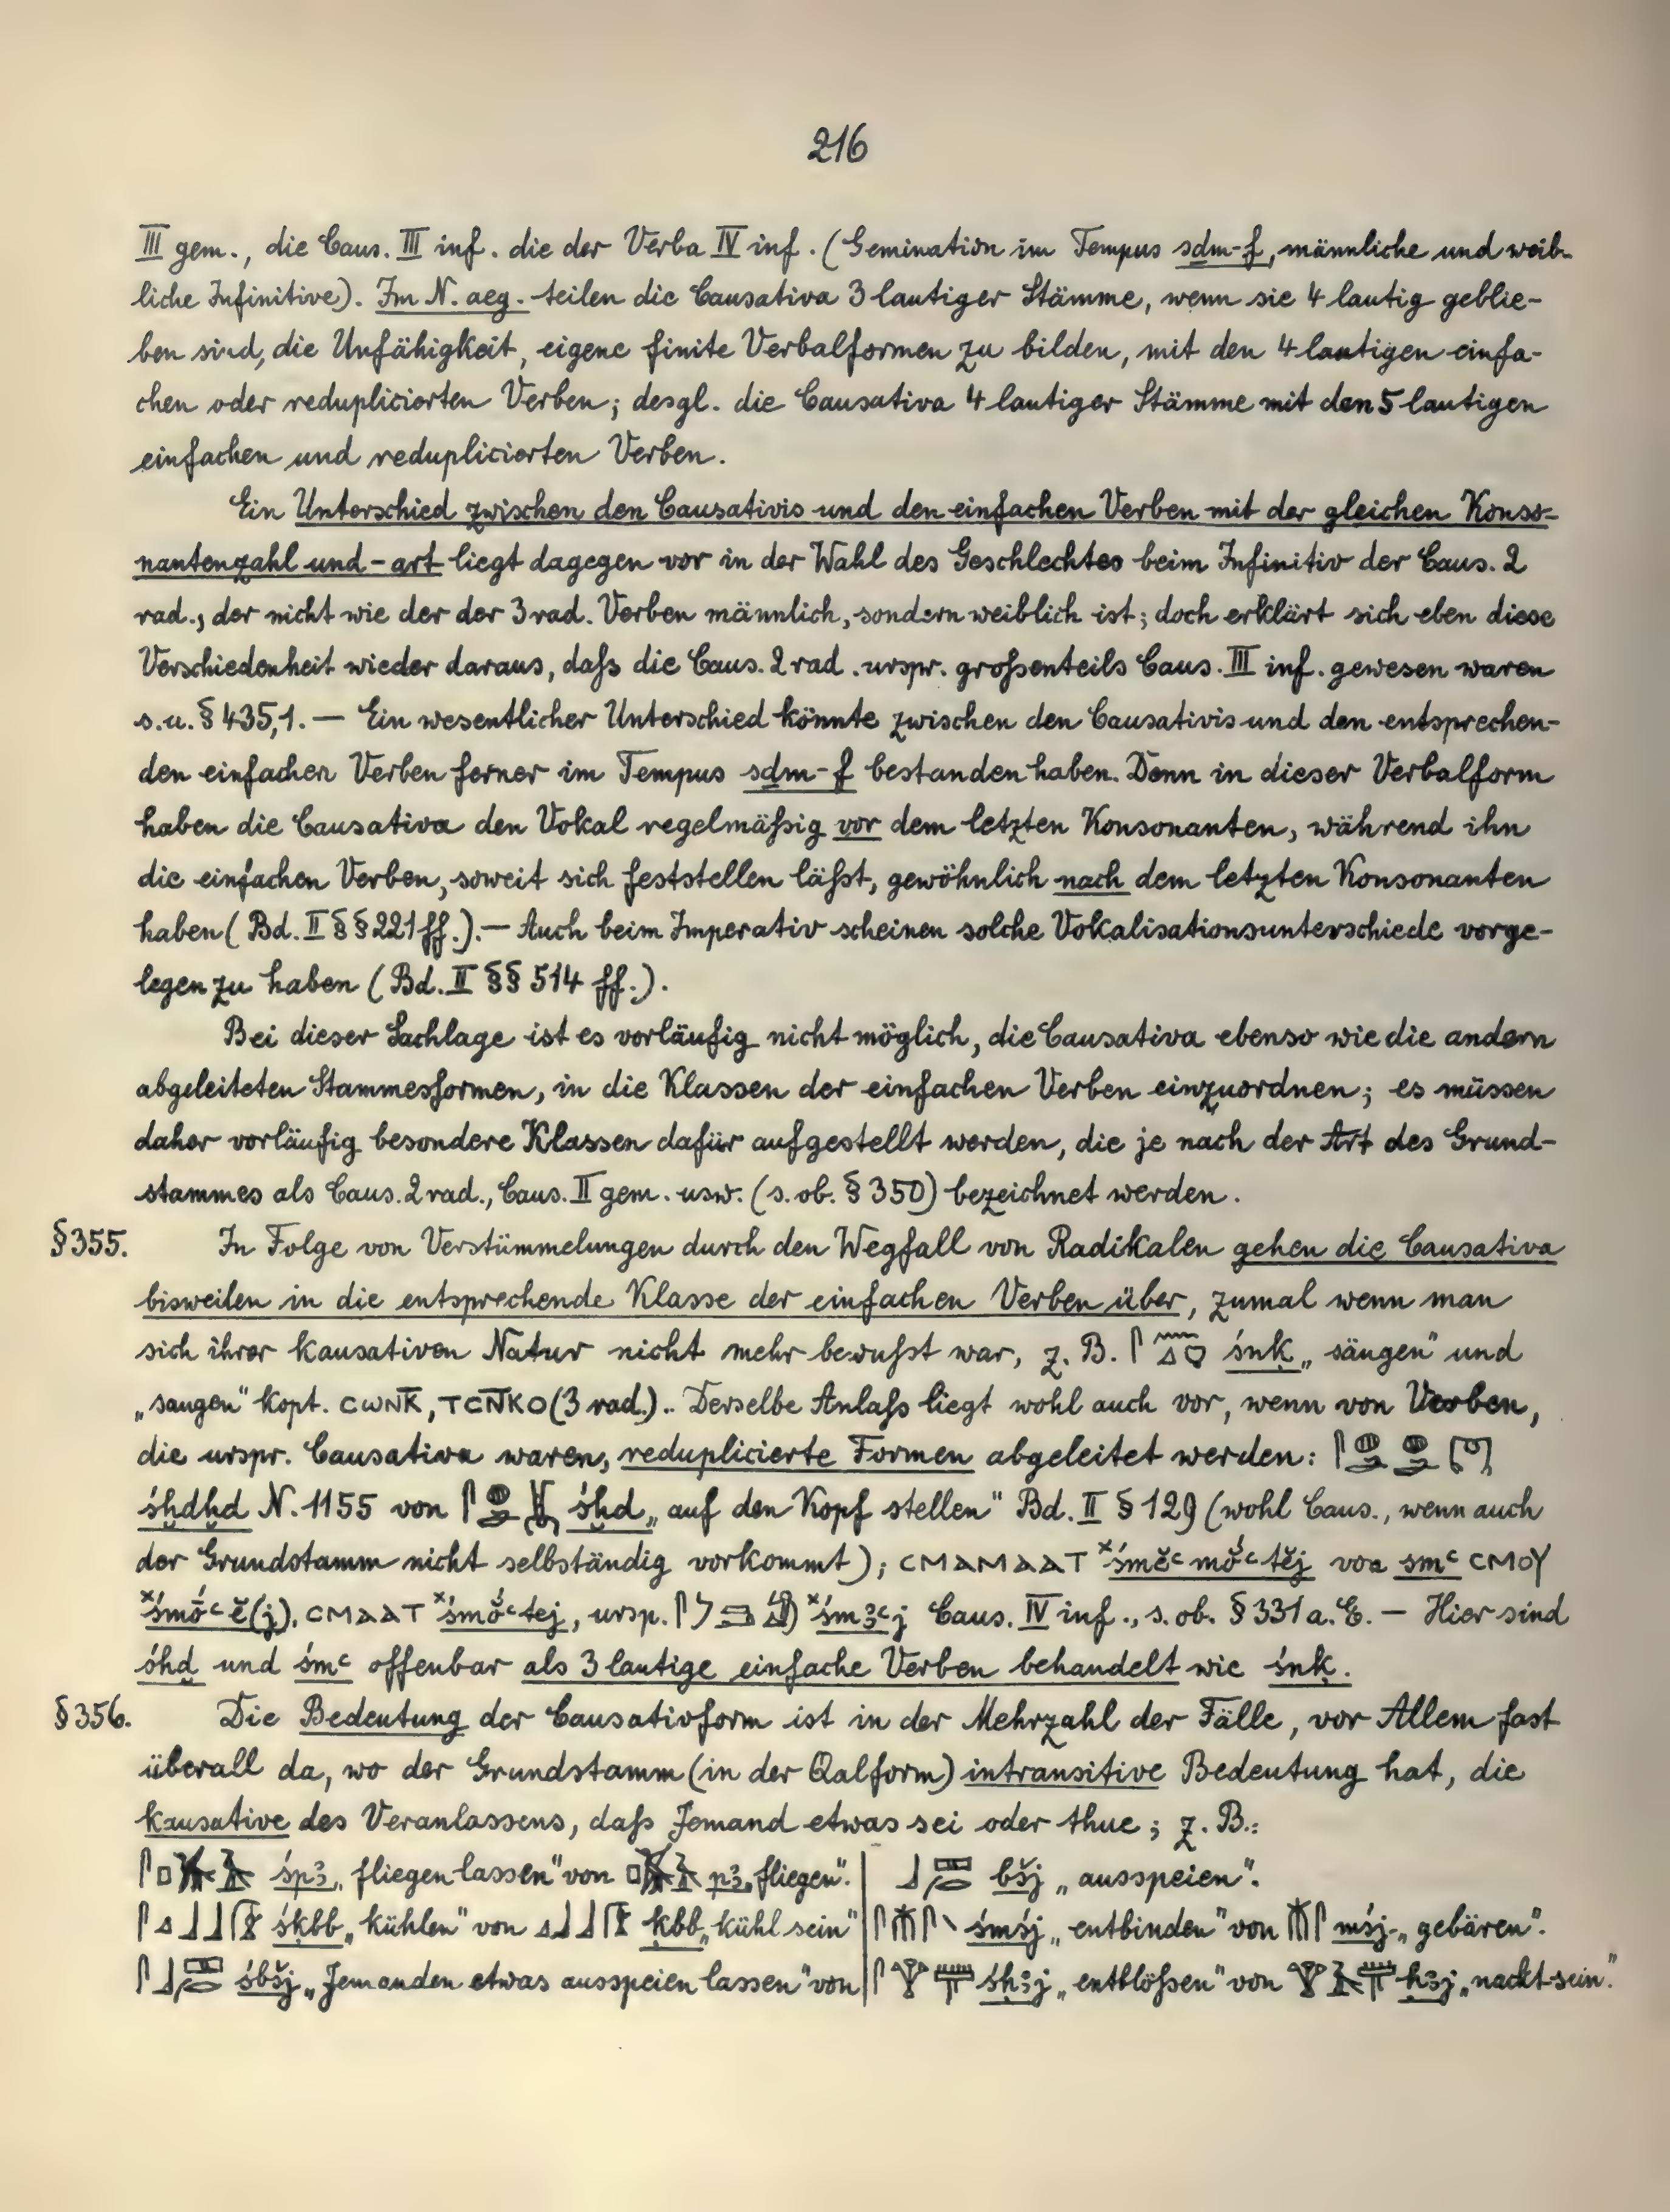 216
III gem., die Caus. III inf. die der Verba IV inf. (Gemination im Tempus sḏm-f, männliche und weib-
liche Infinitive). Im N. aeg. teilen die Causativa 3 lautiger Stämme, wenn sie 4 lautig geblie-
ben sind, die Unfähigkeit, eigene finite Verbalformen zu bilden, mit den 4 lautigen einfa-
chen oder reduplicierten Verben; desgl. die Causativa 4 lautiger Stämme mit den 5 lautigen
einfachen und reduplicierten Verben.
Ein Unterschied zwischen den Causativis und den einfachen Verben mit der gleichen Konso-
nantenzahl und -art liegt dagegen vor in der Wahl des Geschlechtes beim Infinitiv der Caus. 2
rad., der nicht wie der der 3 rad. Verben männlich, sondern weiblich ist; doch erklärt sich eben diese
Verschiedenheit wieder daraus, daſs die Caus. 2 rad. urspr. groſsenteils Caus. III inf. gewesen waren
s. u. § 435,1. — Ein wesentlicher Unterschied könnte zwischen den Causativis und den entsprechen-
den einfachen Verben ferner im Tempus sḏm-f bestanden haben. Denn in dieser Verbalform
haben die Causativa den Vokal regelmäſsig vor dem letzten Konsonanten, während ihn
die einfachen Verben, soweit sich feststellen läſst, gewöhnlich nach dem letzten Konsonanten
haben (Bd. II §§ 221 ff.). — Auch beim Imperativ scheinen solche Vokalisationsunterschiede vorge-
legen zu haben (Bd. II §§ 514 ff.).
Bei dieser Sachlage ist es vorläufig nicht möglich, die Causativa ebenso wie die andern
abgeleiteten Stammesformen, in die Klassen der einfachen Verben einzuordnen; es müssen
daher vorläufig besondere Klassen dafür aufgestellt werden, die je nach der Art des Grund-
stammes als Caus. 2 rad., Caus. II gem. usw. (s. ob. § 350) bezeichnet werden.
§ 355. In Folge von Verstümmelungen durch den Wegfall von Radikalen gehen die Causativa
bisweilen in die entsprechende Klasse der einfachen Verben über, zumal wenn man
sich ihrer kausativen Natur nicht mehr bewuſst war, z. B. śnḳ „säugen“ und
„saugen“ kopt. ⲥⲱⲛⲕ̅, ⲧⲥⲛ̅ⲕⲟ (3 rad.). Derselbe Anlaſs liegt wohl auch vor, wenn von Verben,
die urspr. Causativa waren, reduplicierte Formen abgeleitet werden:
śḫdḫd N. 1155 von śḫd „auf den Kopf stellen“ Bd. II § 129 (wohl Caus., wenn auch
der Grundstamm nicht selbständig vorkommt); ⲥⲙⲁⲙⲁⲁⲧ ˣśmĕꜥmŏ́ꜥtĕj von smꜥ ⲥⲙⲟⲩ
ˣśmōꜥĕ(j), ⲥⲙⲁⲁⲧ ˣśmŏ́ꜥtej, ursp. ˣśmꜣꜥj Caus. IV inf., s. ob. § 331 a. E. — Hier sind
śḫd und śmꜥ offenbar als 3 lautige einfache Verben behandelt wie śnḳ.
§ 356. Die Bedeutung der Causativform ist in der Mehrzahl der Fälle, vor Allem fast
überall da, wo der Grundstamm (in der Qalform) intransitive Bedeutung hat, die
kausative des Veranlassens, daſs Jemand etwas sei oder thue; z. B.:
śpꜣ „fliegen lassen“ von pꜣ „fliegen“. | bšj „ausspeien“.
śḳbb „kühlen“ von ḳbb „kühl sein“ | śmśj „entbinden“ von mśj „gebären“.
śbšj „Jemanden etwas ausspeien lassen“ von | śḥꜣj „entblöſsen“ von ḥꜣj „nackt sein“.